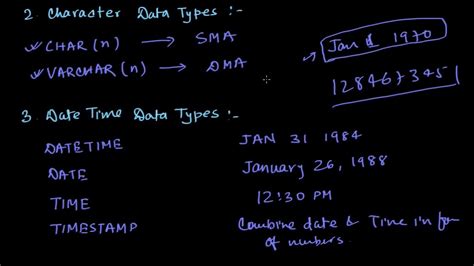 2. Character Data Types :-
✓ CHAR (n) → SMA
✓ VARCHAR (n) → DMA
Jan 1 1970
1284673451
3. Date Time Data Types :-
DATETIME JAN 31 1984
DATE January 26, 1988
TIME 12:30 PM
TIMESTAMP Combine date & Time in
of numbers.